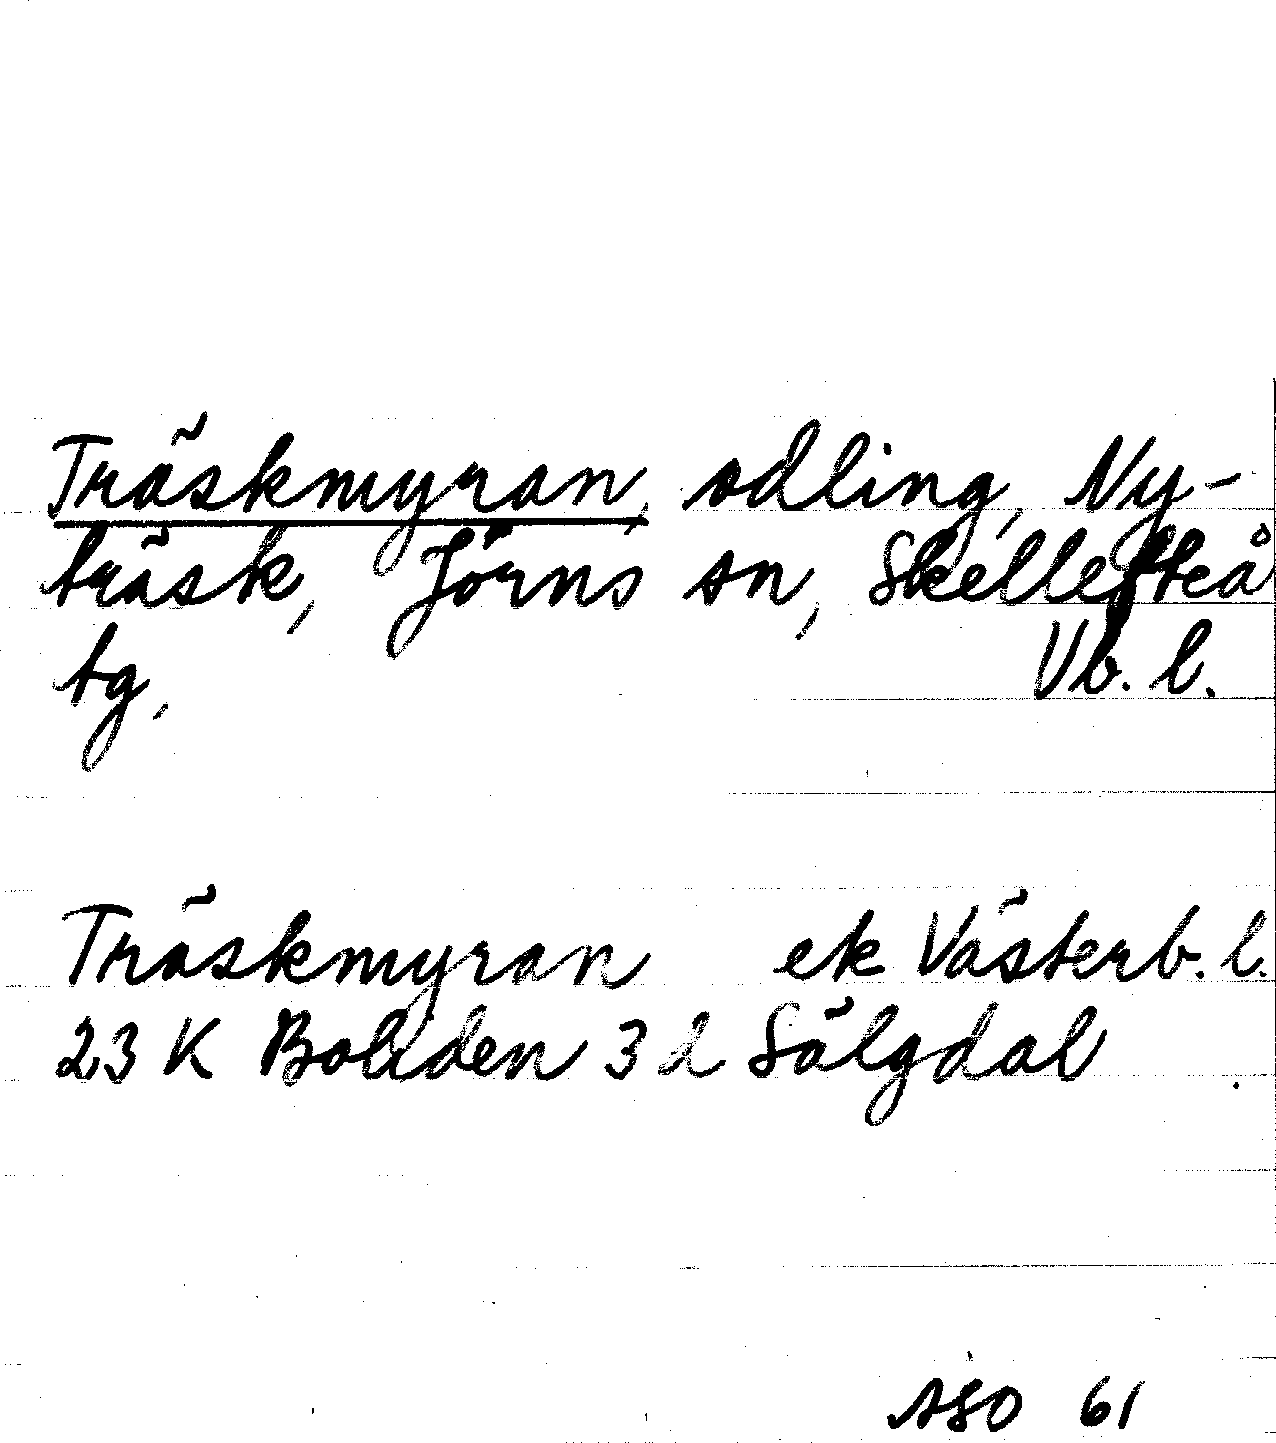 Träskmyran, odling, Ny-
träsk, Jörns sn, Skellefteå
tg, Vb. l.
Träskmyran ek Västerb. l.
23 K Boliden 3 d Sälgdal
ASO 61